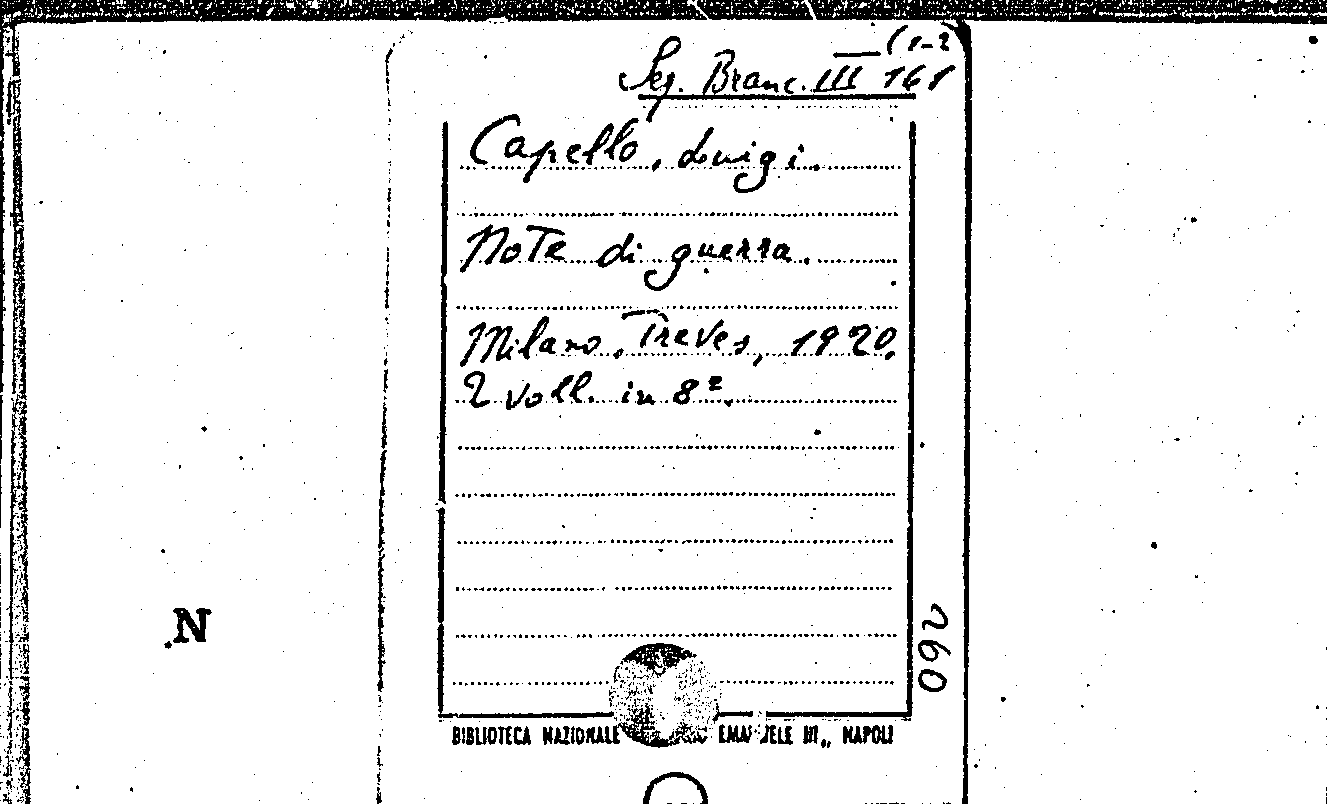 (1-2
Seg. Branc. III 161
Capello, Luigi.
Note di guerra.
Milano, Treves, 1920.
2 voll. in 8º.
N
260
BIBLIOTECA NAZIONALE EMANUELE III„ NAPOLI